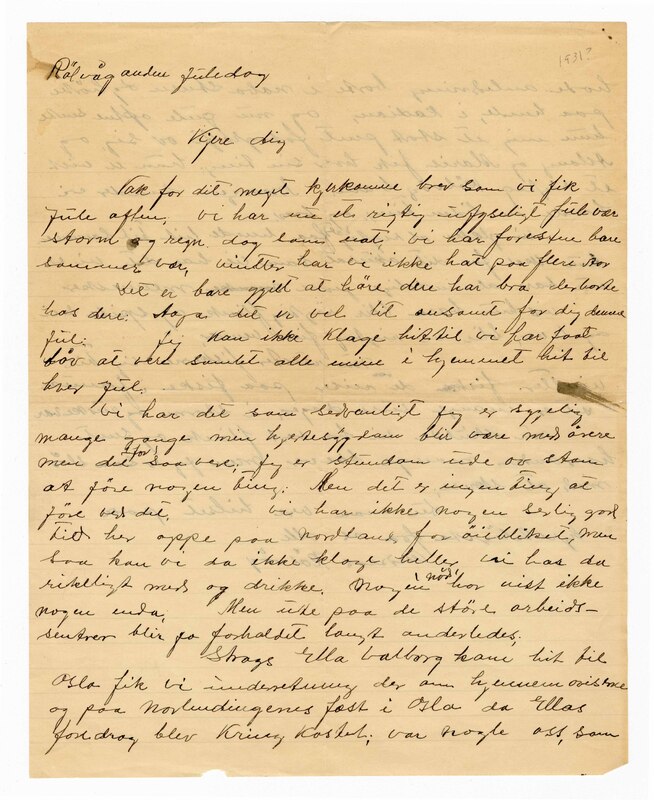 1931?
Rölvåg anden Juledag
Kjere dig
Tak for dit meget kjerkomne brev som vi fik
Jule aften, vi har nu et rigtig uhyseligt Jule vær
storm og regn, dag som nat, vi har foresten bare
sommer vær, vinter har vi ikke hat paa flere aar
Det er bare gjilt at höre dere har bra derborte
hos dere. Aaja det er vel lit ensomt for dig denne
jul. Jeg kan ikke klage hittil vi har faat
lov at vere samlet alle mine i hjemmet hit til
hver Jul.
Vi har det som sedvanligt jeg er sygelig
mange gange men hjertesygdom blir være med årene
men det for saa vere. Jeg er stundom ude av stan
at före nogen ting. Men det er ingenting at
före ved det. Vi har ikke nogen serlig god
tid her oppe paa Nordland for öieblikket, men
saa kan vi da ikke klage heller, vi har da
rikeligt med og drikke. Nogen nöd, har vist ikke
nogen enda. Men ute paa de störe arbeids-
sentrer blir jo forholdet langt anderledes.
Strags Ella Valborg kom hit til
Oslo fik vi underetning der om hjennem aviserne
og paa Norlendingenes fæst i Oslo da Ellas
fordrag blev Kring Kastet, var nogle oss, som